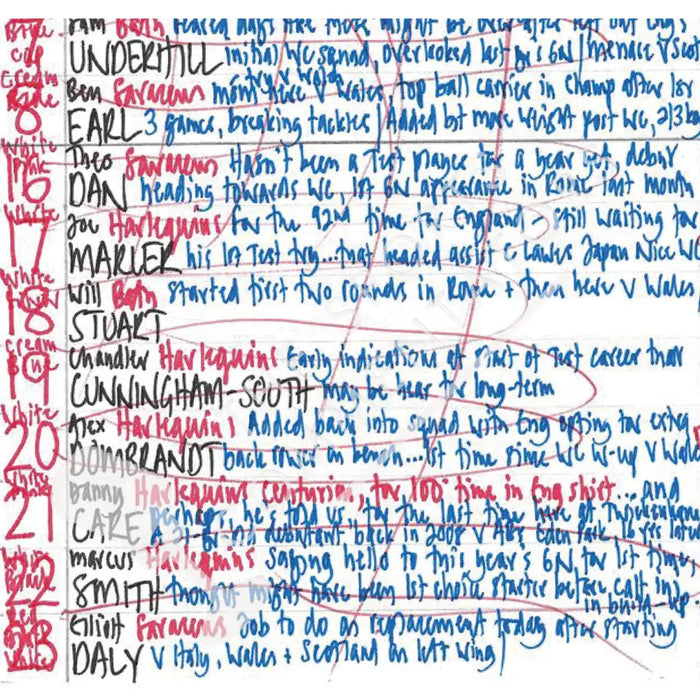 Sam Bath feared days like these might be over after left out Eng's
7 UNDERHILL initial WC squad, overlooked last yr's 6N / menace v Scot
try v Wales
Cream
8 Ben Saracens mom here v Wales top ball carrier in champ after 1st
EARL 3 games, breaking tackles / Added bit more weight post WC, 2/3 kg
White
Pink
16 Theo Saracens Hasn't been a Test player for a year yet, debut
DAN heading towards WC, 1st 6N appearance in Rome last month
White
17 Joe Harlequins For the 92nd time for England - still waiting for
MARLER his 1st Test try...that headed assist c Lawes Japan Nice WC
White
18 Will Bath started first two rounds in Rome + then here v Wales
STUART
Cream
19 Chandler Harlequins Early indications at start of Test career that
CUNNINGHAM-SOUTH may be near for long-term
White
20 Alex Harlequins Added back into squad with Eng opting for extra
DOMBRANDT back rower on bench...1st time since WC w-up v Wales
21 Danny Harlequins centurion, for 100th time in Eng shirt...and
perhaps he's told us, for the last time here at Twickenham
CARE debutant back in 2008 v
22 Marcus Harlequins Saying hello to this year's 6N, for 1st time
SMITH thought might have been 1st choice starter before calf inj
in build-up
Red
23 Elliott Saracens Job to do as replacement today after starting
DALY v Italy, Wales + Scotland on left wing